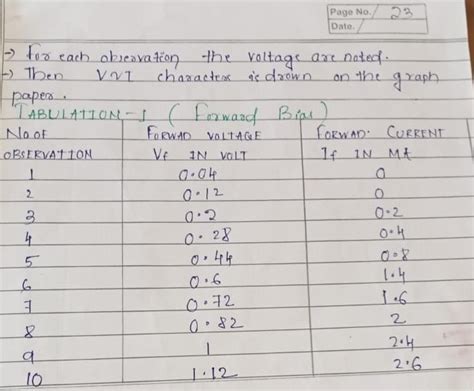 Page No. 23
Date.
→ for each observation the voltage are noted.
→) Then VVI character is drown on the graph
paper.
TABULATION-1 ( Forward Bias)
No. OF FORWAD VOLTAGE FORWAD. CURRENT
OBSERVATION Vf IN VOLT If IN MA
1 0.04 0
2 0.12 0
3 0.2 0.2
4 0.28 0.4
5 0.44 0.8
6 0.6 1.4
7 0.72 1.6
8 0.82 2
9 1 2.4
10 1.12 2.6